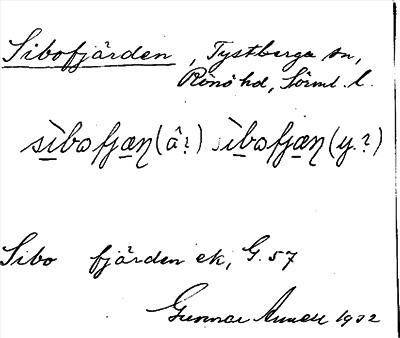 Sibofjärden, Tystberga sn,
Rönö hd, Sörml. l.
sìbofjæɳ (â?) sìbofjæɳ (y.?)
Sibo fjärden ek, G. 57
Gunnar Annell 1932